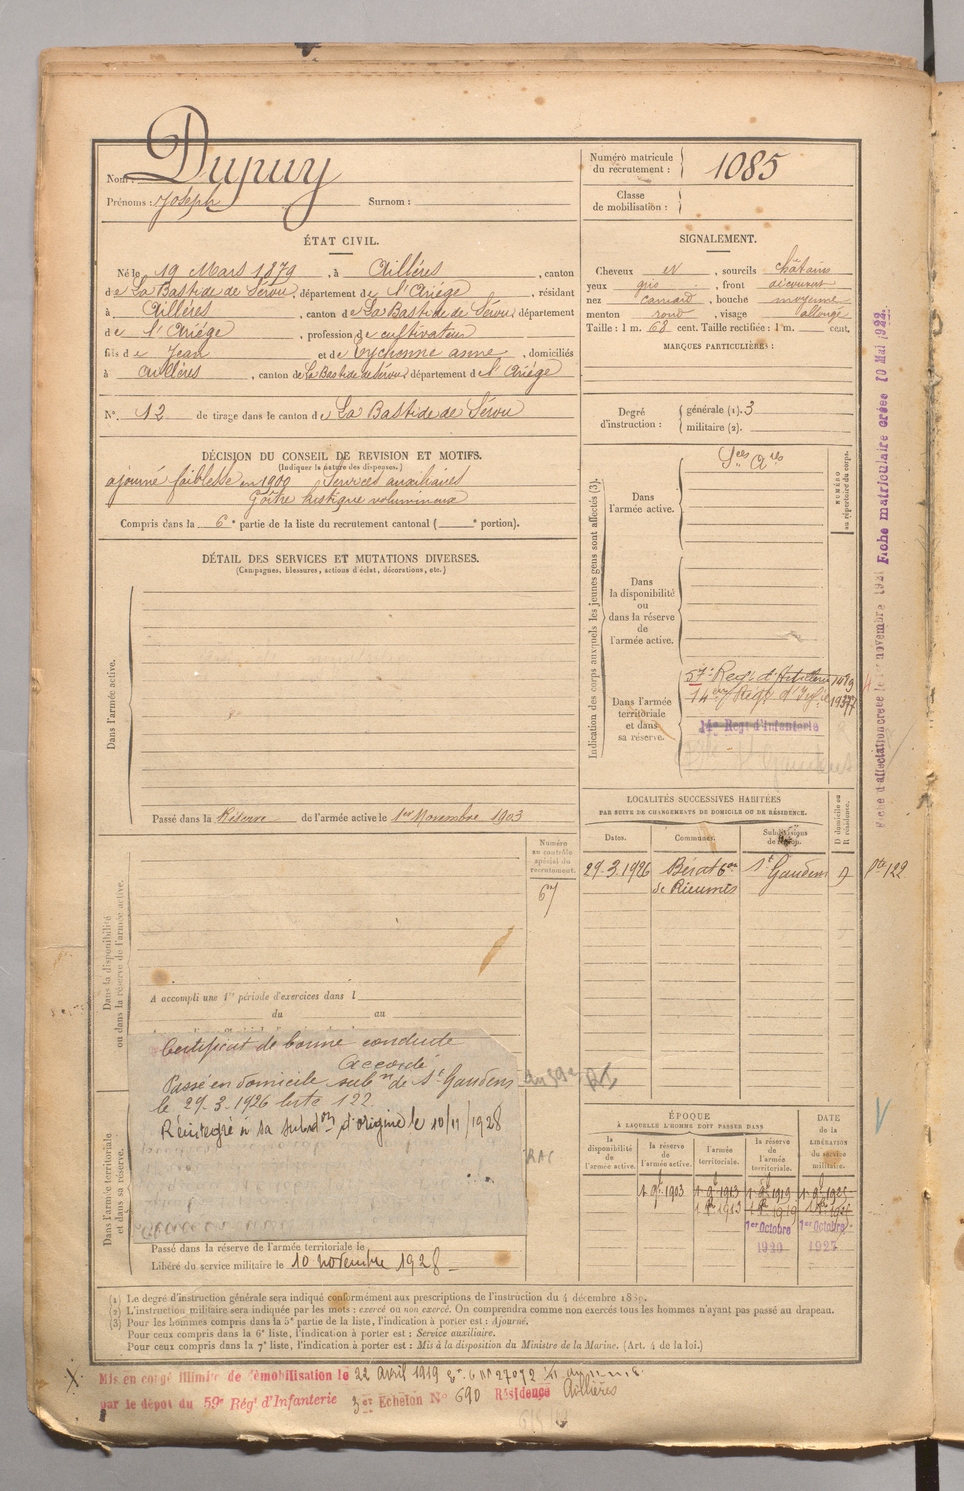 Nom : Dupuy
Prénoms : Joseph Surnom :
Numéro matricule du recrutement : 1085
Classe de mobilisation :
ÉTAT CIVIL.
Né le 19 Mars 1879, à Aillères, canton
de La Bastide de Sérou, département de l'Ariége, résidant
à Aillères, canton de La Bastide de Sérou, département
de l'Ariége, profession de cultivateur
fils de Jean et de Eychenne anne, domiciliés
à Aillères, canton de La Bastide de Sérou, département de l'Ariége
N° 12 de tirage dans le canton de La Bastide de Sérou
SIGNALEMENT.
Cheveux et, sourcils châtains
yeux gris, front découvert
nez camard, bouche moyenne
menton rond, visage allongé
Taille : 1 m. 68 cent. Taille rectifiée : 1 m. cent.
MARQUES PARTICULIÈRES :
Degré d'instruction :
générale (1). 3
militaire (2).
DÉCISION DU CONSEIL DE REVISION ET MOTIFS.
(Indiquer la nature des dispenses.)
ajourné faiblesse en 1900 Services auxiliaires
Goître kystique volumineux
Compris dans la 6e partie de la liste du recrutement cantonal ( e portion).
DÉTAIL DES SERVICES ET MUTATIONS DIVERSES.
(Campagnes, blessures, actions d'éclat, décorations, etc.)
Dans l'armée active.
Passé dans la Réserve de l'armée active le 1er Novembre 1903
Indication des corps auxquels les jeunes gens sont affectés (3).
NUMÉRO au répertoire du corps.
Dans l'armée active.
Sces Ares
Dans la disponibilité ou dans la réserve de l'armée active.
Dans l'armée territoriale et dans sa réserve.
57e Regt d'Artillerie
14e Regt d'Infanterie
LOCALITÉS SUCCESSIVES HABITÉES
PAR SUITE DE CHANGEMENTS DE DOMICILE OU DE RÉSIDENCE.
Dates. Communes.
D domicile ou R résidence.
29-3-1926 Bérat Con de Rieumes St Gaudens D
liste 122
Fiche matriculaire créée 10 Mai 1922
Dans la disponibilité ou dans la réserve de l'armée active.
Numéro au contrôle spécial du recrutement.
67
A accompli une 1re période d'exercices dans l
du au
Certificat de bonne conduite
Accordé
Passé en domicile subon de St Gaudens
le 29-3-1926 liste 122
Réintégré à sa subdon d'origine le 10/11/1928
RAC
Dans l'armée territoriale et dans sa réserve.
Passé dans la réserve de l'armée territoriale le
Libéré du service militaire le 10 novembre 1928
ÉPOQUE
À LAQUELLE L'HOMME DOIT PASSER DANS
la disponibilité de l'armée active.
la réserve de l'armée active.
l'armée territoriale.
la réserve de l'armée territoriale.
DATE de la LIBÉRATION du service militaire.
1er Octobre 1er Octobre
(1) Le degré d'instruction générale sera indiqué conformément aux prescriptions de l'instruction du 4 décembre 1889.
(2) L'instruction militaire sera indiquée par les mots : exercé ou non exercé. On comprendra comme non exercés tous les hommes n'ayant pas passé au drapeau.
(3) Pour les hommes compris dans la 5e partie de la liste, l'indication à porter est : Ajourné.
Pour ceux compris dans la 6e liste, l'indication à porter est : Service auxiliaire.
Pour ceux compris dans la 7e liste, l'indication à porter est : Mis à la disposition du Ministre de la Marine. (Art. 4 de la loi.)
Mis en congé illimité de démobilisation le 22 Avril 1919
par le dépôt du 59e Régt d'Infanterie 3er Echelon N° 690 Résidence Aillières